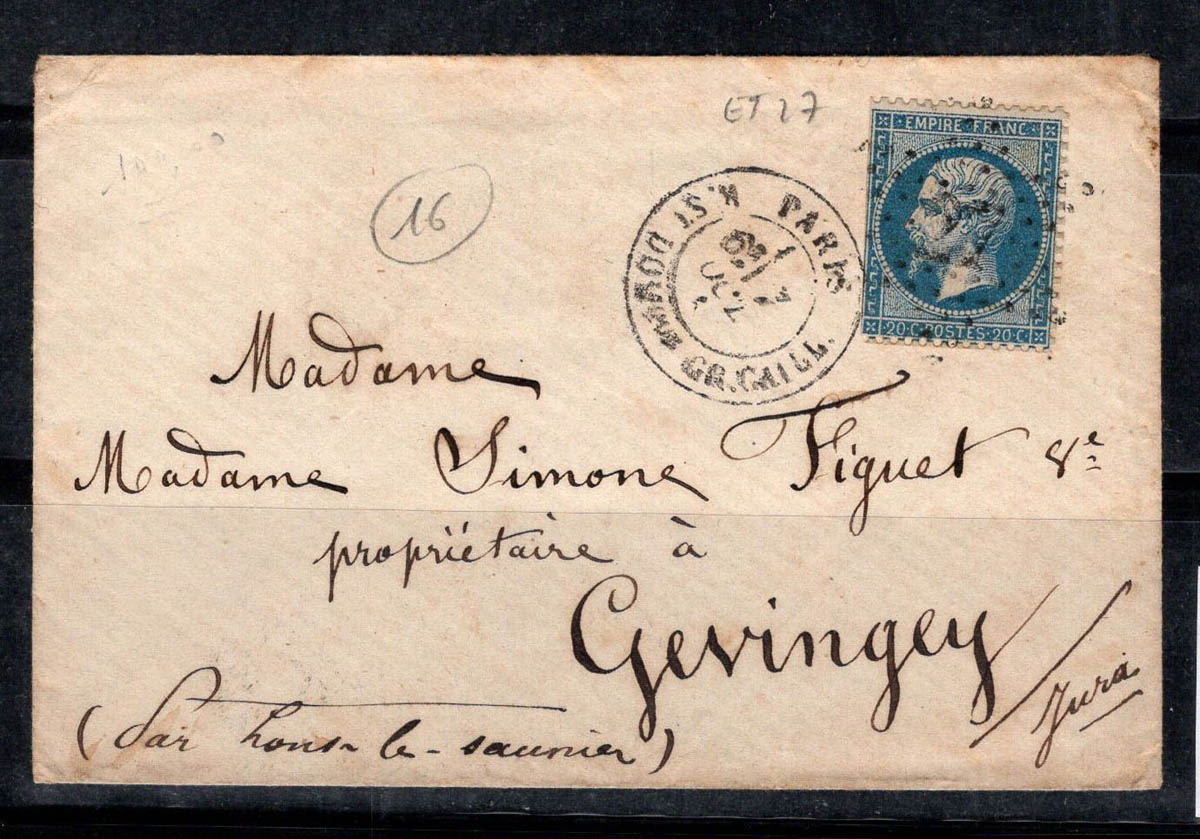 ET 27
16
EMPIRE FRANC
20·C POSTES·20·C
PARIS
R. ST DOM
GR. CAILL.
Madame
Madame Simone Figuet Vᵉ
propriétaire à
Gevingey
Jura
(Par Lons-le-saunier)